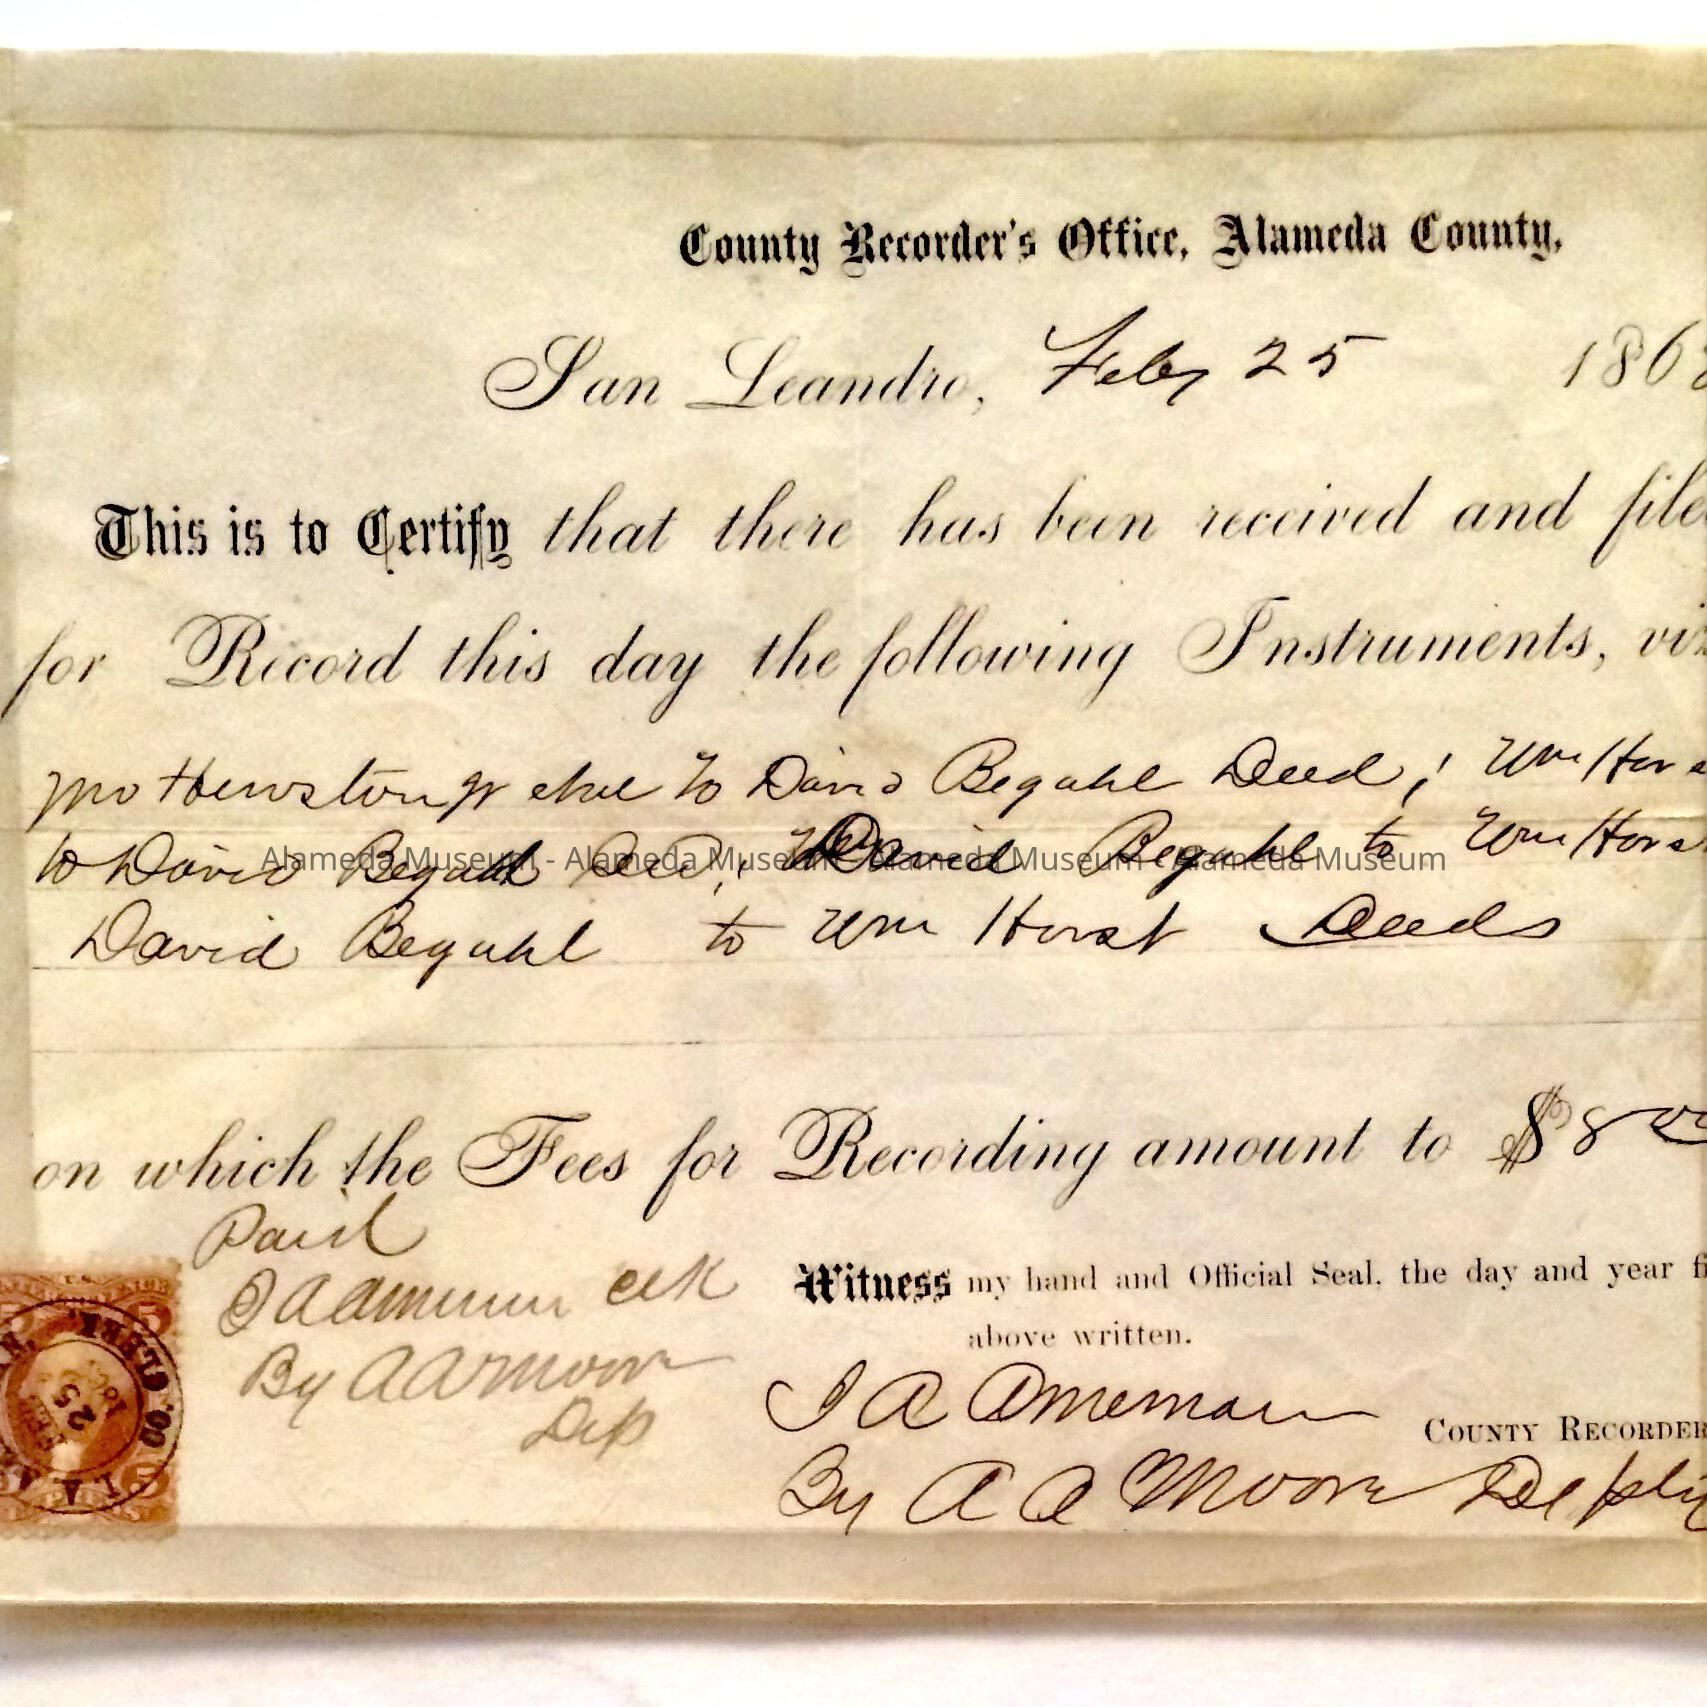 County Recorder's Office, Alameda County,
San Leandro, Feby 25 186
This is to Certify that there has been received and file
for Record this day the following Instruments, viz
to David Beguhl Deed; Wm Hors
to David Beguhl David Beguhl to Wm Horst
David Beguhl to Wm Horst Deeds
on which the Fees for Recording amount to $8 00
Paid
Witness my hand and Official Seal, the day and year fi
above written.
I A Amerman clk
By A A Moore
Dep
I A Amerman COUNTY RECORDER
By A A Moore Deputy
25
Alameda Museum - Alameda Museum - Alameda Museum - Alameda Museum